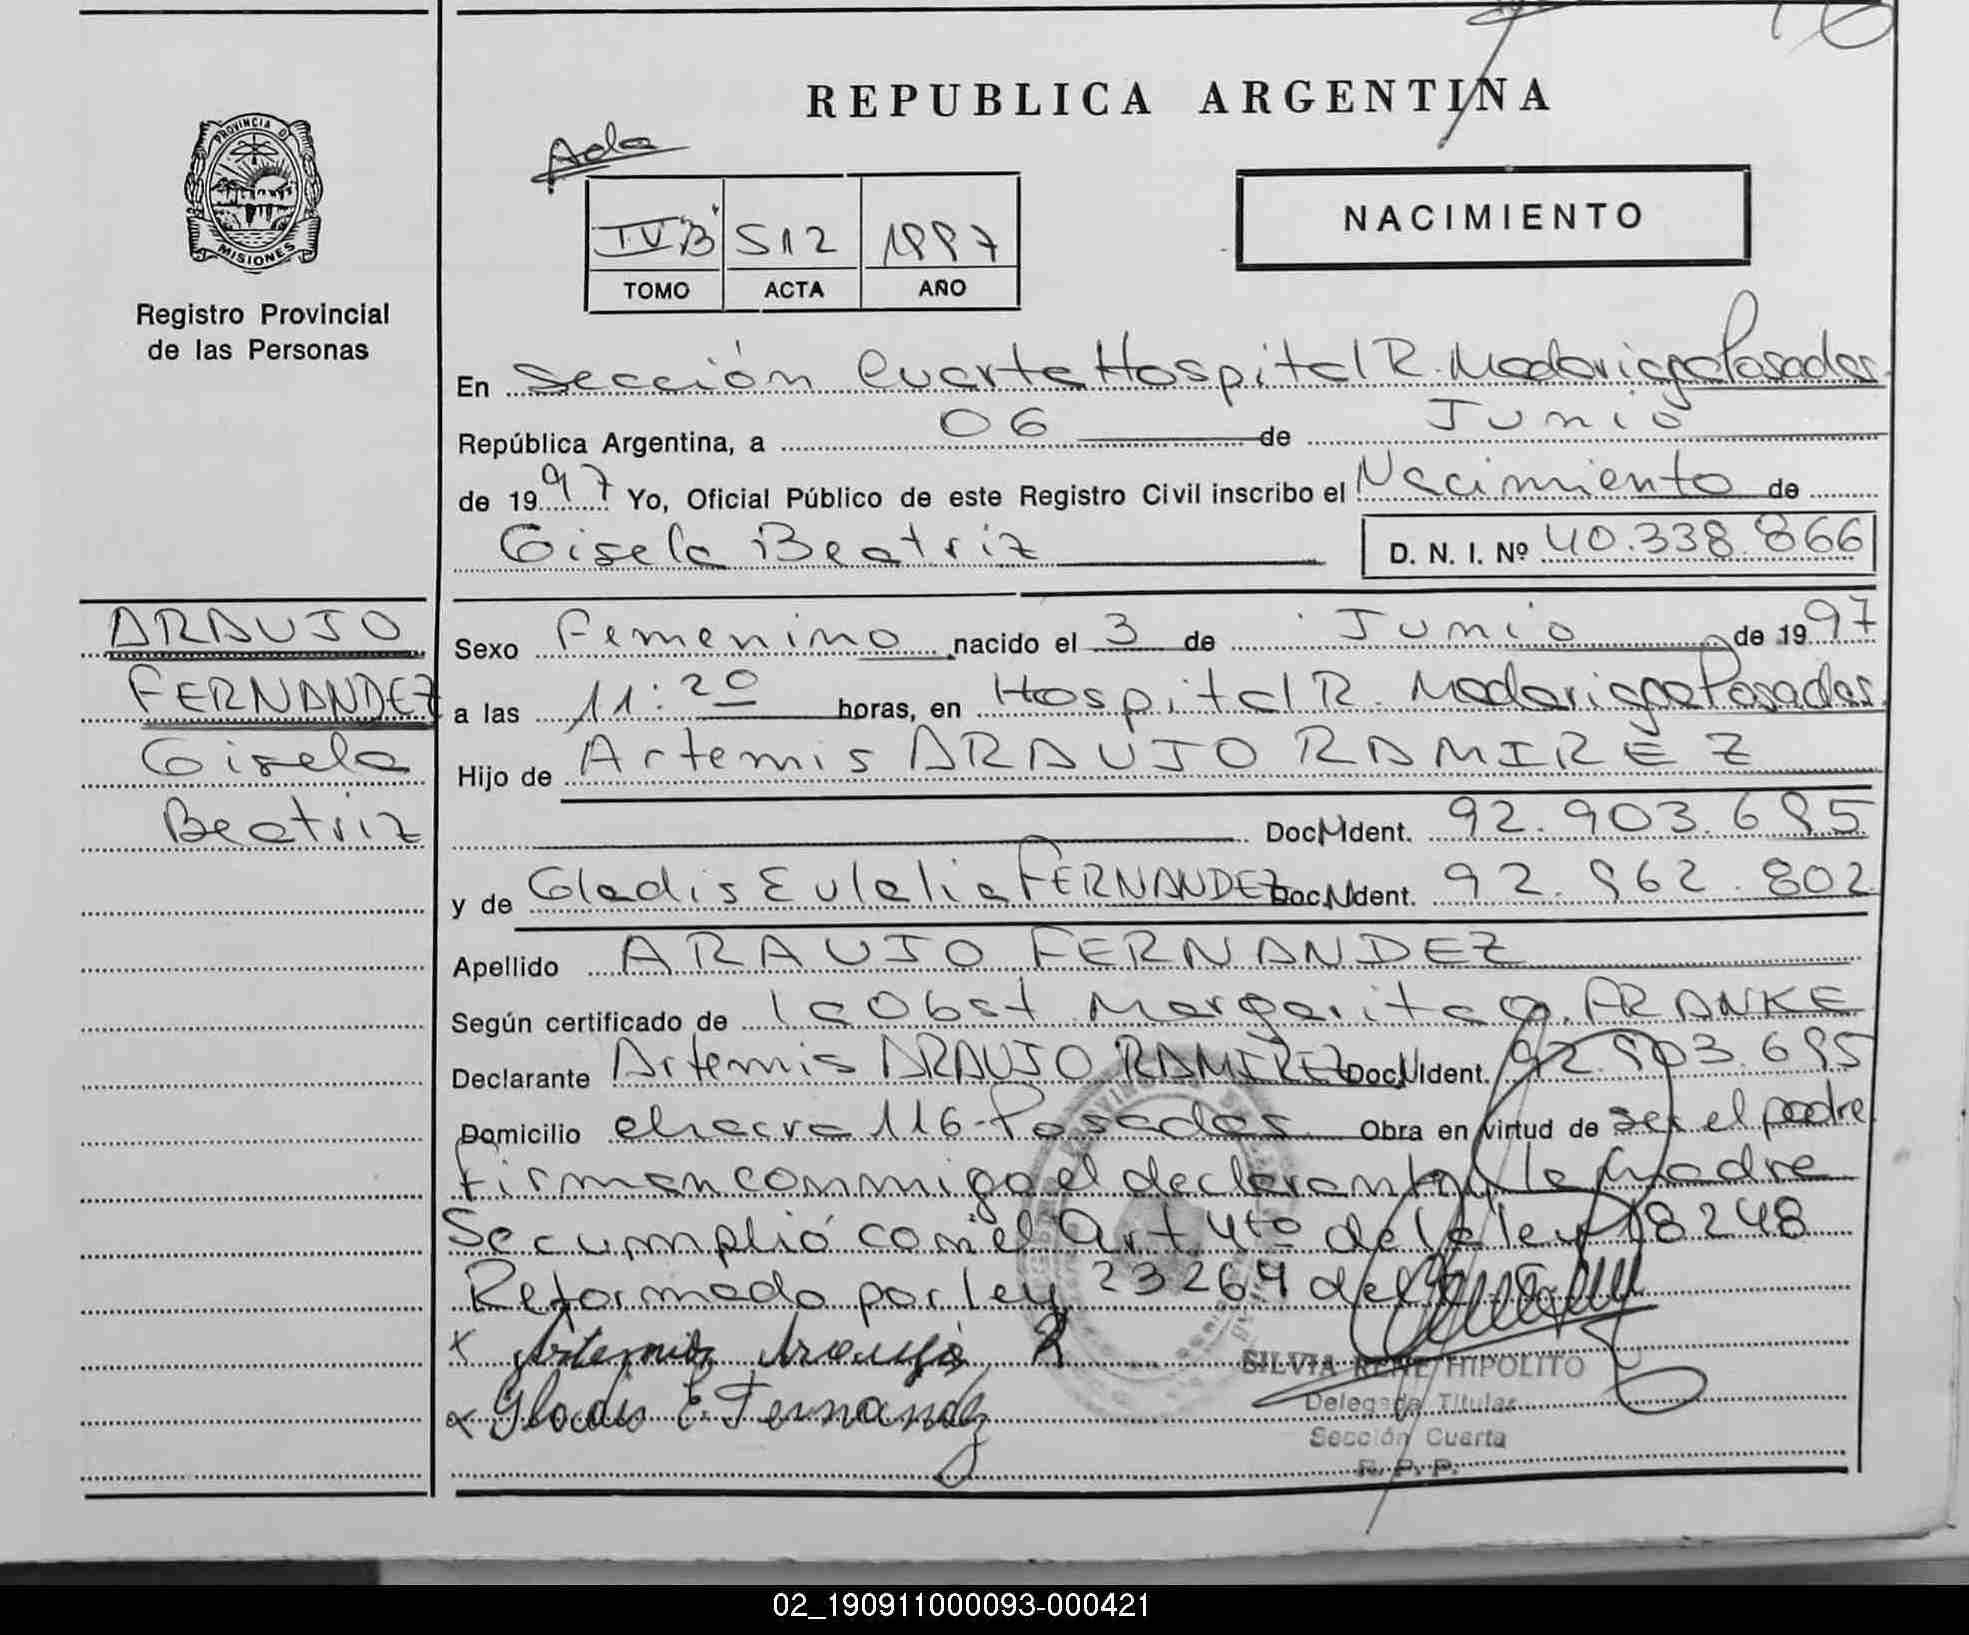 REPUBLICA ARGENTINA
PROVINCIA D
MISIONES
Registro Provincial
de las Personas
IV B 512 1997
TOMO ACTA AÑO
NACIMIENTO
En Sección Cuarta Hospital R. Madariaga Posadas.
República Argentina, a 06 de Junio
de 1997 Yo, Oficial Público de este Registro Civil inscribo el Nacimiento de
Gisela Beatriz D. N. I. Nº 40.338.866
ARAUJO
FERNANDEZ
Gisela
Beatriz
Sexo Femenino nacido el 3 de Junio de 1997
a las 11:20 horas, en Hospital R. Madariaga Posadas.
Hijo de Artemis ARAUJO RAMIREZ
Doc. Ident. 92.903.695
y de Gladis Eulalia FERNANDEZ Doc. Ident. 92.962.802
Apellido ARAUJO FERNANDEZ
Según certificado de la Obst Margarita FRANKE
Declarante Artemis ARAUJO RAMIREZ Doc. Ident. 92.903.695
Domicilio chacra 116-Posadas Obra en virtud de ser el padre
firman conmigo el declarante y la Madre
Se cumplió con el Art 4to de la ley 18248
Reformado por ley 23264 del
x Artemis Araujo R
x Gladis E. Fernandez
SILVIA RENE HIPOLITO
Delegada Titular
Sección Cuarta
R. P. P.
02_190911000093-000421